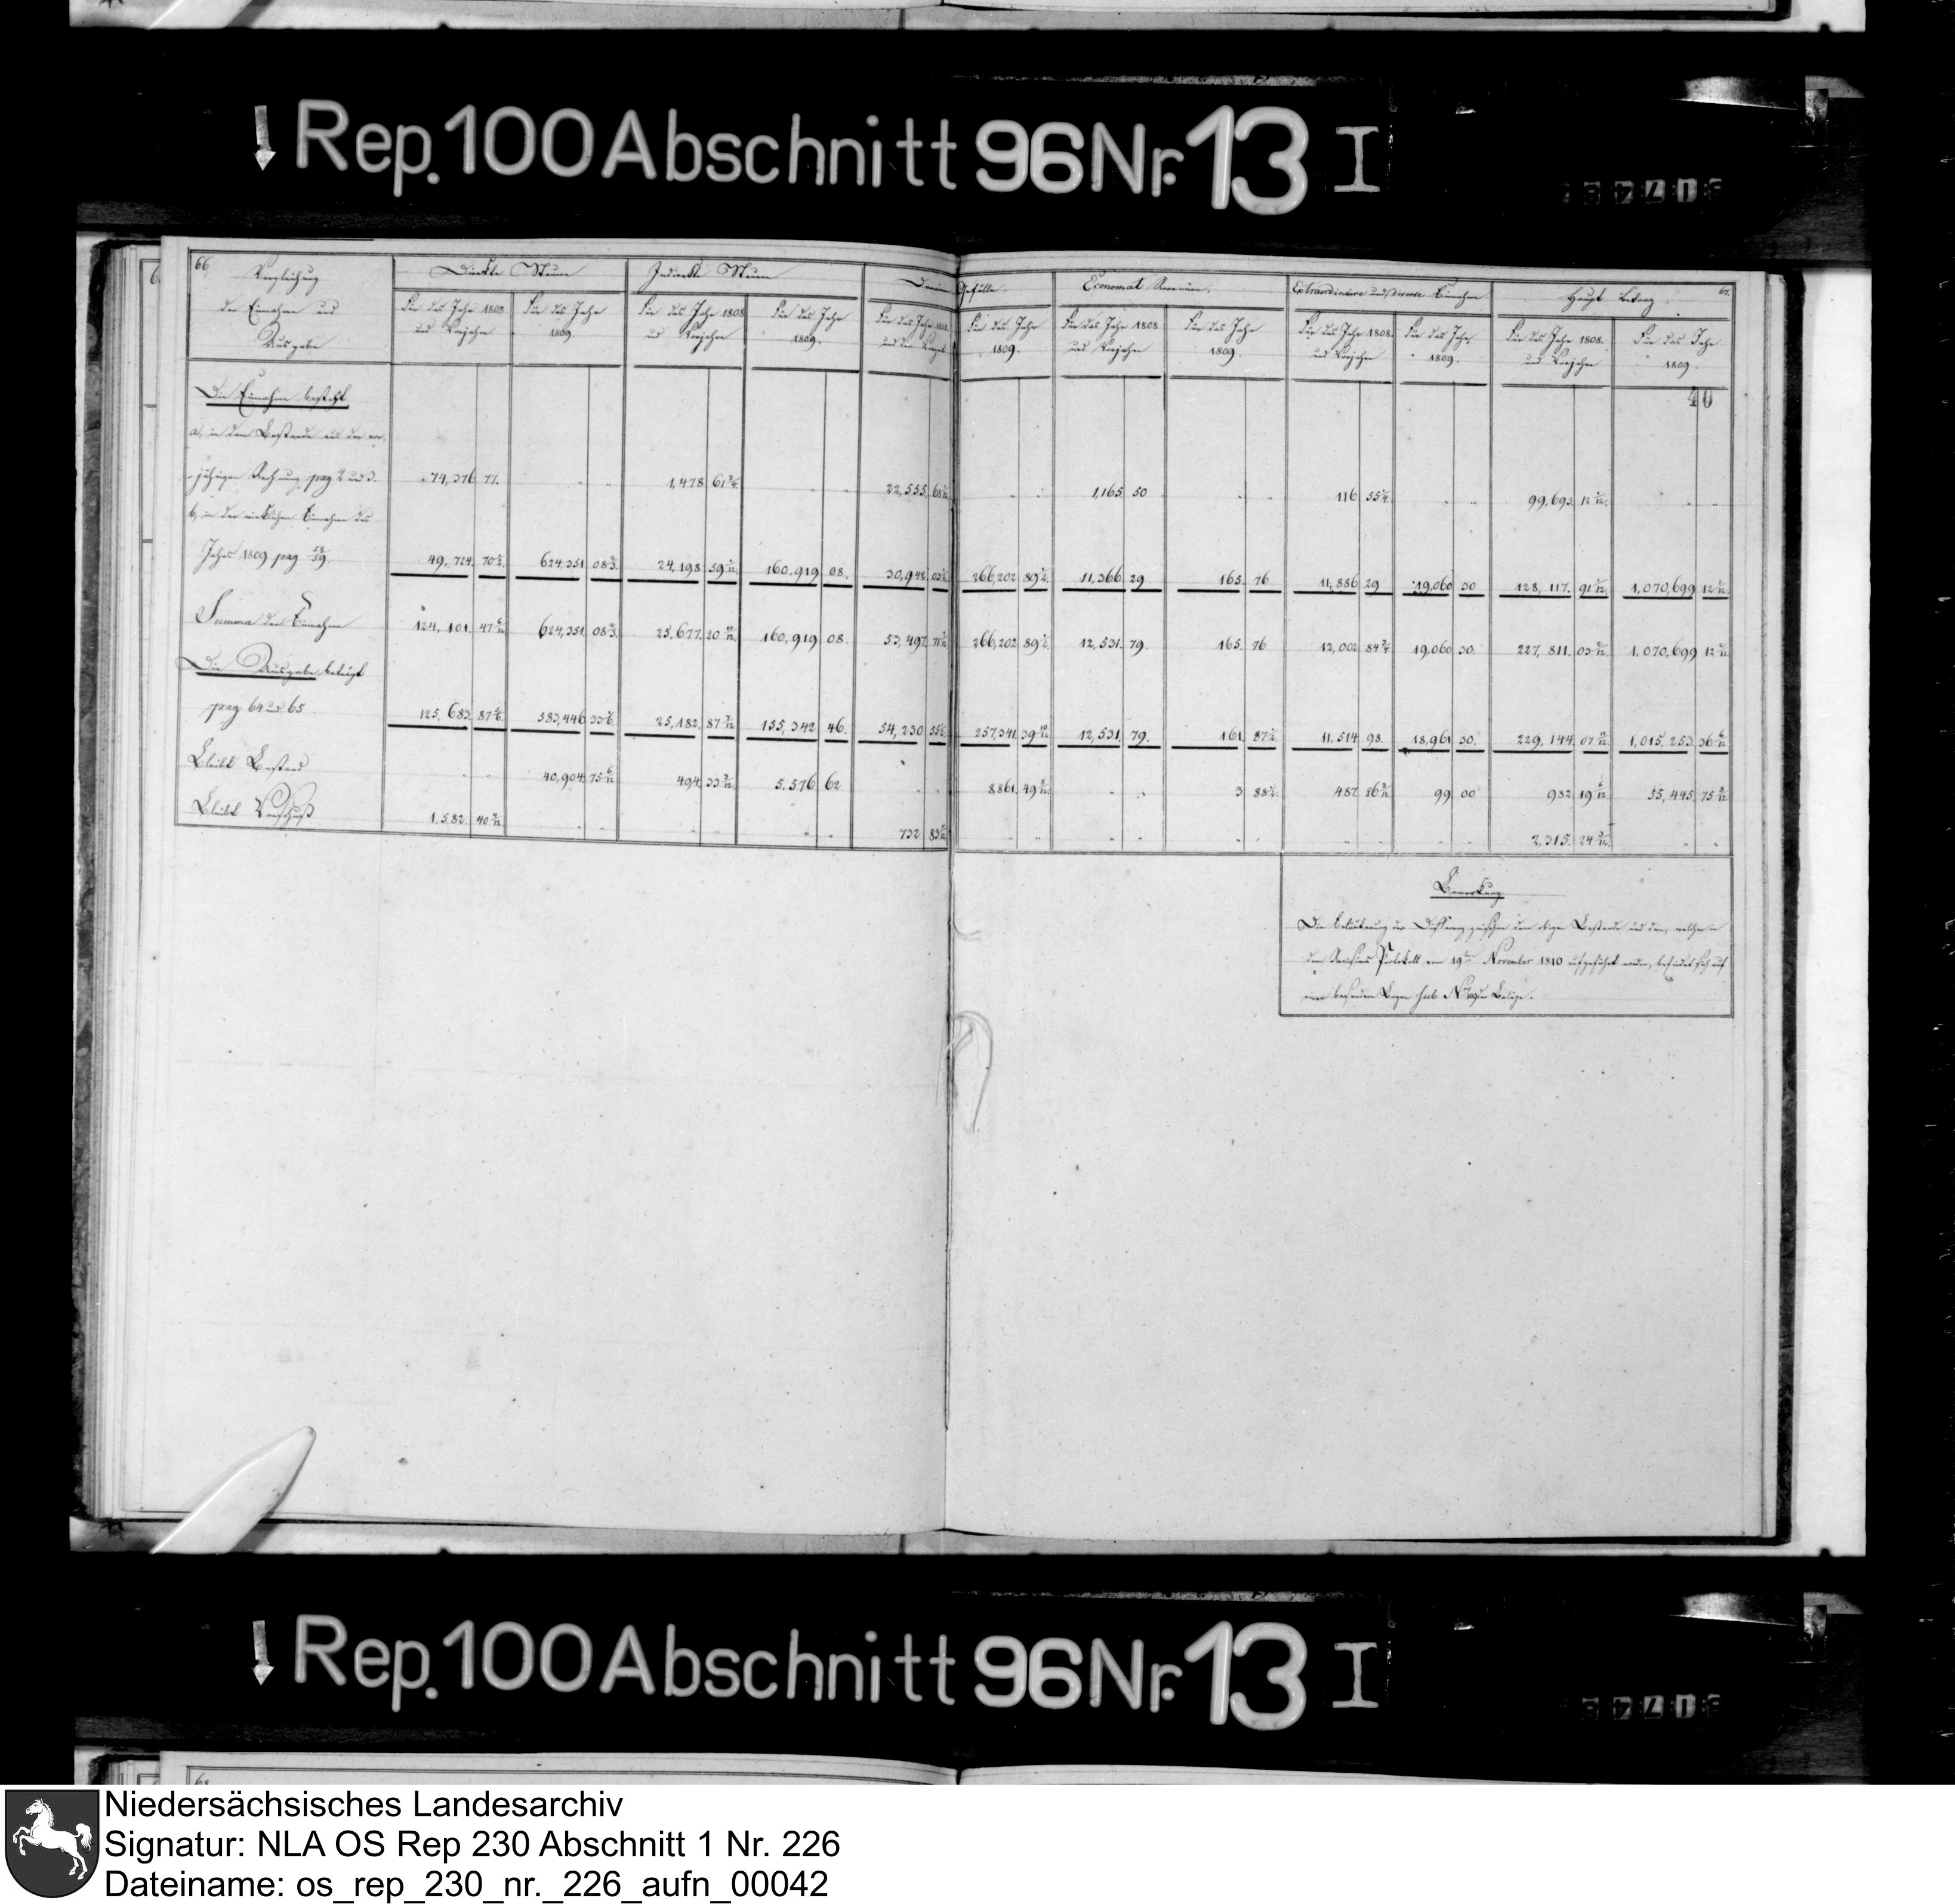 Rep. 100 Abschnitt 96 Nr. 13 I
66.
Vergleichung
der Einnahme und
Ausgabe
Direkte Steuern
Für das Jahr 1808 und Vorjahre
Für das Jahr 1809.
Indirekte Steuern
Für das Jahr 1808 und Vorjahre
Für das Jahr 1809.
Domainen Gefälle.
Für das Jahr 1808
Für das Jahr 1809.
Economat Revenüen.
Für das Jahr 1808 und Vorjahre
Für das Jahr 1809.
Extraordinaire und diverse Einnahme
Für das Jahr 1808. und Vorjahre
Für das Jahr 1809.
Haupt Betrag.
67.
Für das Jahr 1808. und Vorjahre
Für das Jahr 1809.
40
Die Einnahme besteht
a, in dem Bestande aus der vor-
jährigen Rechnung pag 2 und 3.
74,376 77. 1,478 61 3/4 22,555 1,165 50 116 55 1/4 99,693
b, in der wirklichen Einnahme des
Jahrs 1809 pag 58/59.
49,724 70 1/2 624,351 08 2/3 24,198 59 1/12 160,919 08. 266,202 89 1/2 11,366 29 165 76 11,886 29 19,060 30 128,117. 91 1,070,699 12
Summa der Einnahme
124,101. 47 624,351 08 2/3 25,677. 20 160,919 08. 53,497 266,202 89 1/2 12,531. 79. 165. 76 12,002 84 3/4 19,060 30. 227,811. 03 1,070,699 12
Die Ausgabe beträgt
pag 64 und 65.
125,683 87 583,446 33 25,182. 87 155,342 46. 54,230 257,341 39 12,531 79. 161 87 1/2 11,514 98. 18,961 30. 229,144 07 1,015,253 36
Bleibt Bestand
40,904 75 494 33 5,576 62 8861 49 3 88 1/2 487. 86 99 00 982. 19 55,445 75
Bleibt Vorschuß
1,582. 40 732 83 2,315. 24
Bemerkung.
Die Erläuterung der Differenz zwischen dem obigen Bestande und dem, welcher in
dem Revisions Protokoll vom 19ten November 1810 aufgeführt worden, befindet sich auf
einem besondern Bogen sub der Beläge.
Rep. 100 Abschnitt 96 Nr. 13 I
Niedersächsisches Landesarchiv
Signatur: NLA OS Rep 230 Abschnitt 1 Nr. 226
Dateiname: os_rep_230_nr._226_aufn_00042